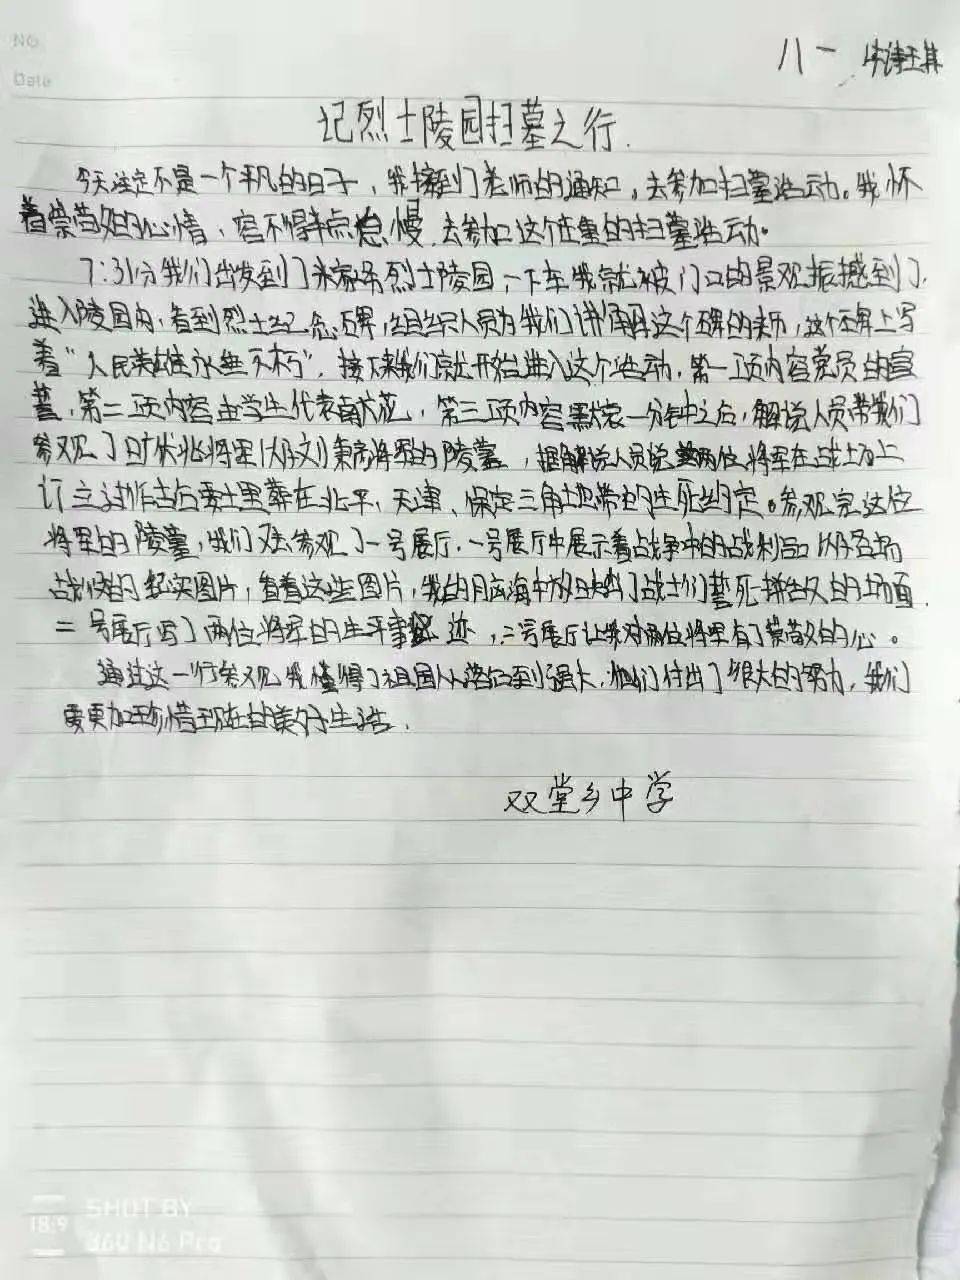 NO
Date
八一
记烈士陵园扫墓之行.
今天注定不是一个平凡的日子，我接到了老师的通知，去参加扫墓活动。我怀
着崇敬的心情，容不得半点怠慢，去参加这个庄重的扫墓活动。
7:31分我们出发到了烈士陵园，一下车我就被门口的景观振撼到了，
进入陵园内，看到烈士纪念碑，组织人员为我们讲解这个碑的来历，这个碑上写
着“人民英雄永垂不朽”，接下来我们就开始进入这个活动，第一项内容党员的宣
誓，第二项内容由学生代表献花，第三项内容默哀一分钟之后，解说人员带我们
参观了旷伏兆将军以及刘秉彦将军的陵墓，据解说人员说两位将军在战场上
订立过作古后要土里葬在北平、天津、保定三角地带的生死约定。参观完这位
将军的陵墓，我们又去参观了一号展厅，一号展厅中展示着战争中的战利品以及各场
战役的纪实图片，看着这些图片，我的脑海中放映出了战士们誓死拼搏的场面，
二号展厅写了两位将军的生平事迹，三号展厅让我对两位将军有了崇敬的心。
通过这一行参观我懂得了祖国从落后到强大，他们付出了很大的努力，我们
要更加珍惜现在的美好生活.
双堂乡中学
18:9
SHOT BY
360 N6 Pro